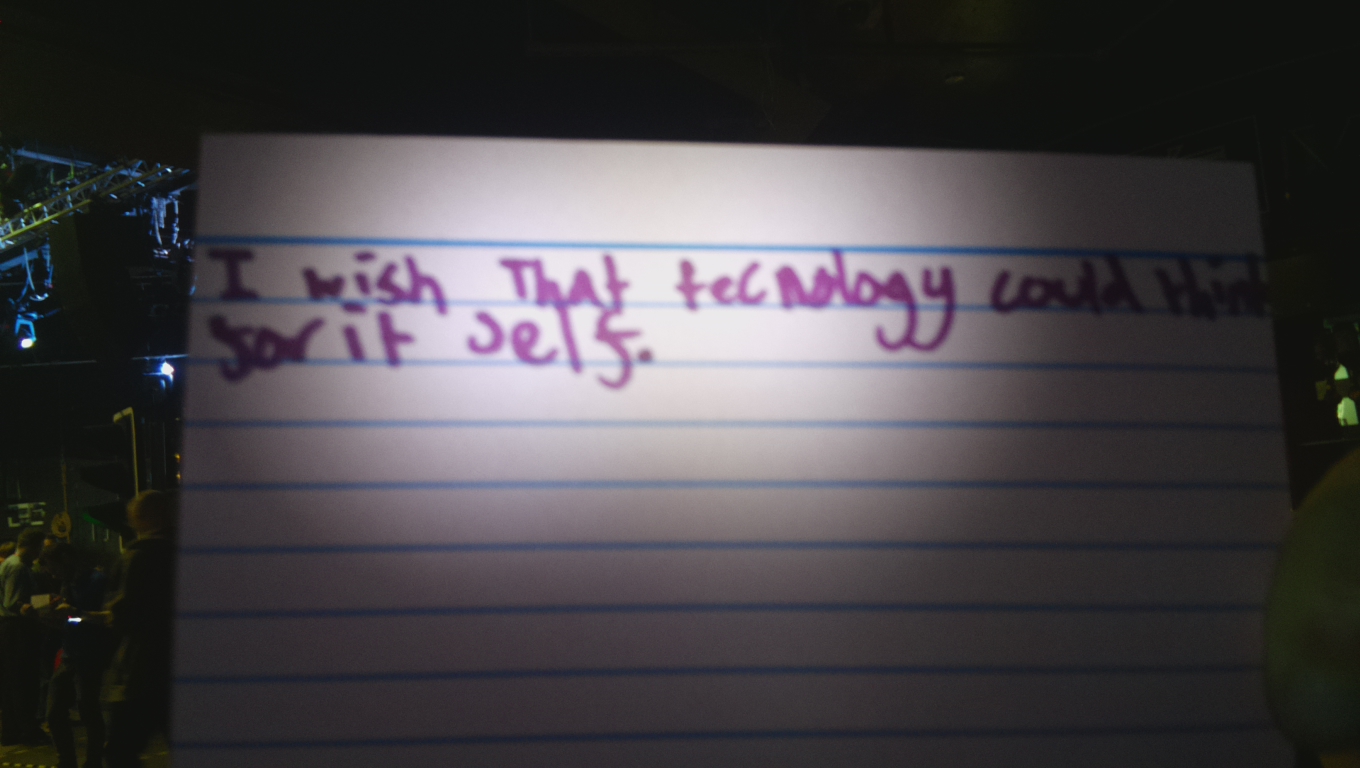 I wish That tecnology could think
for it self.